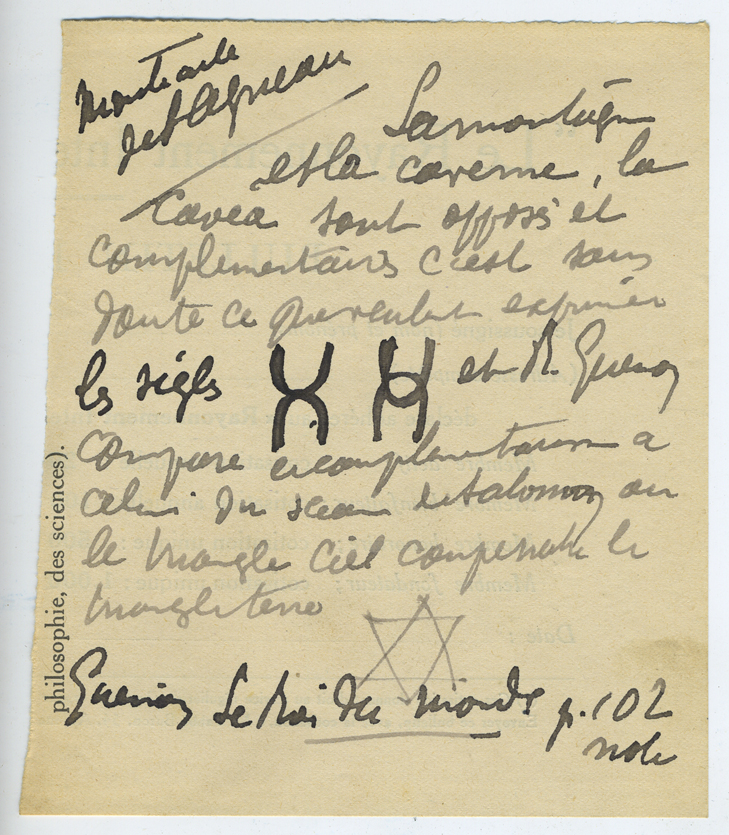 Monticule
de l'Agneau
La montagne
et la caverne, la
Cavea sont opposés et
complementaires c'est sans
doute ce que veulent exprimer
les sigles
et R. Guenon
compare ce complementarisme a
celui du sceau de Salomon ou
le triangle Ciel compenetre le
triangle terre
Guenon Le Roi du monde p. 102
note
philosophie, des sciences).